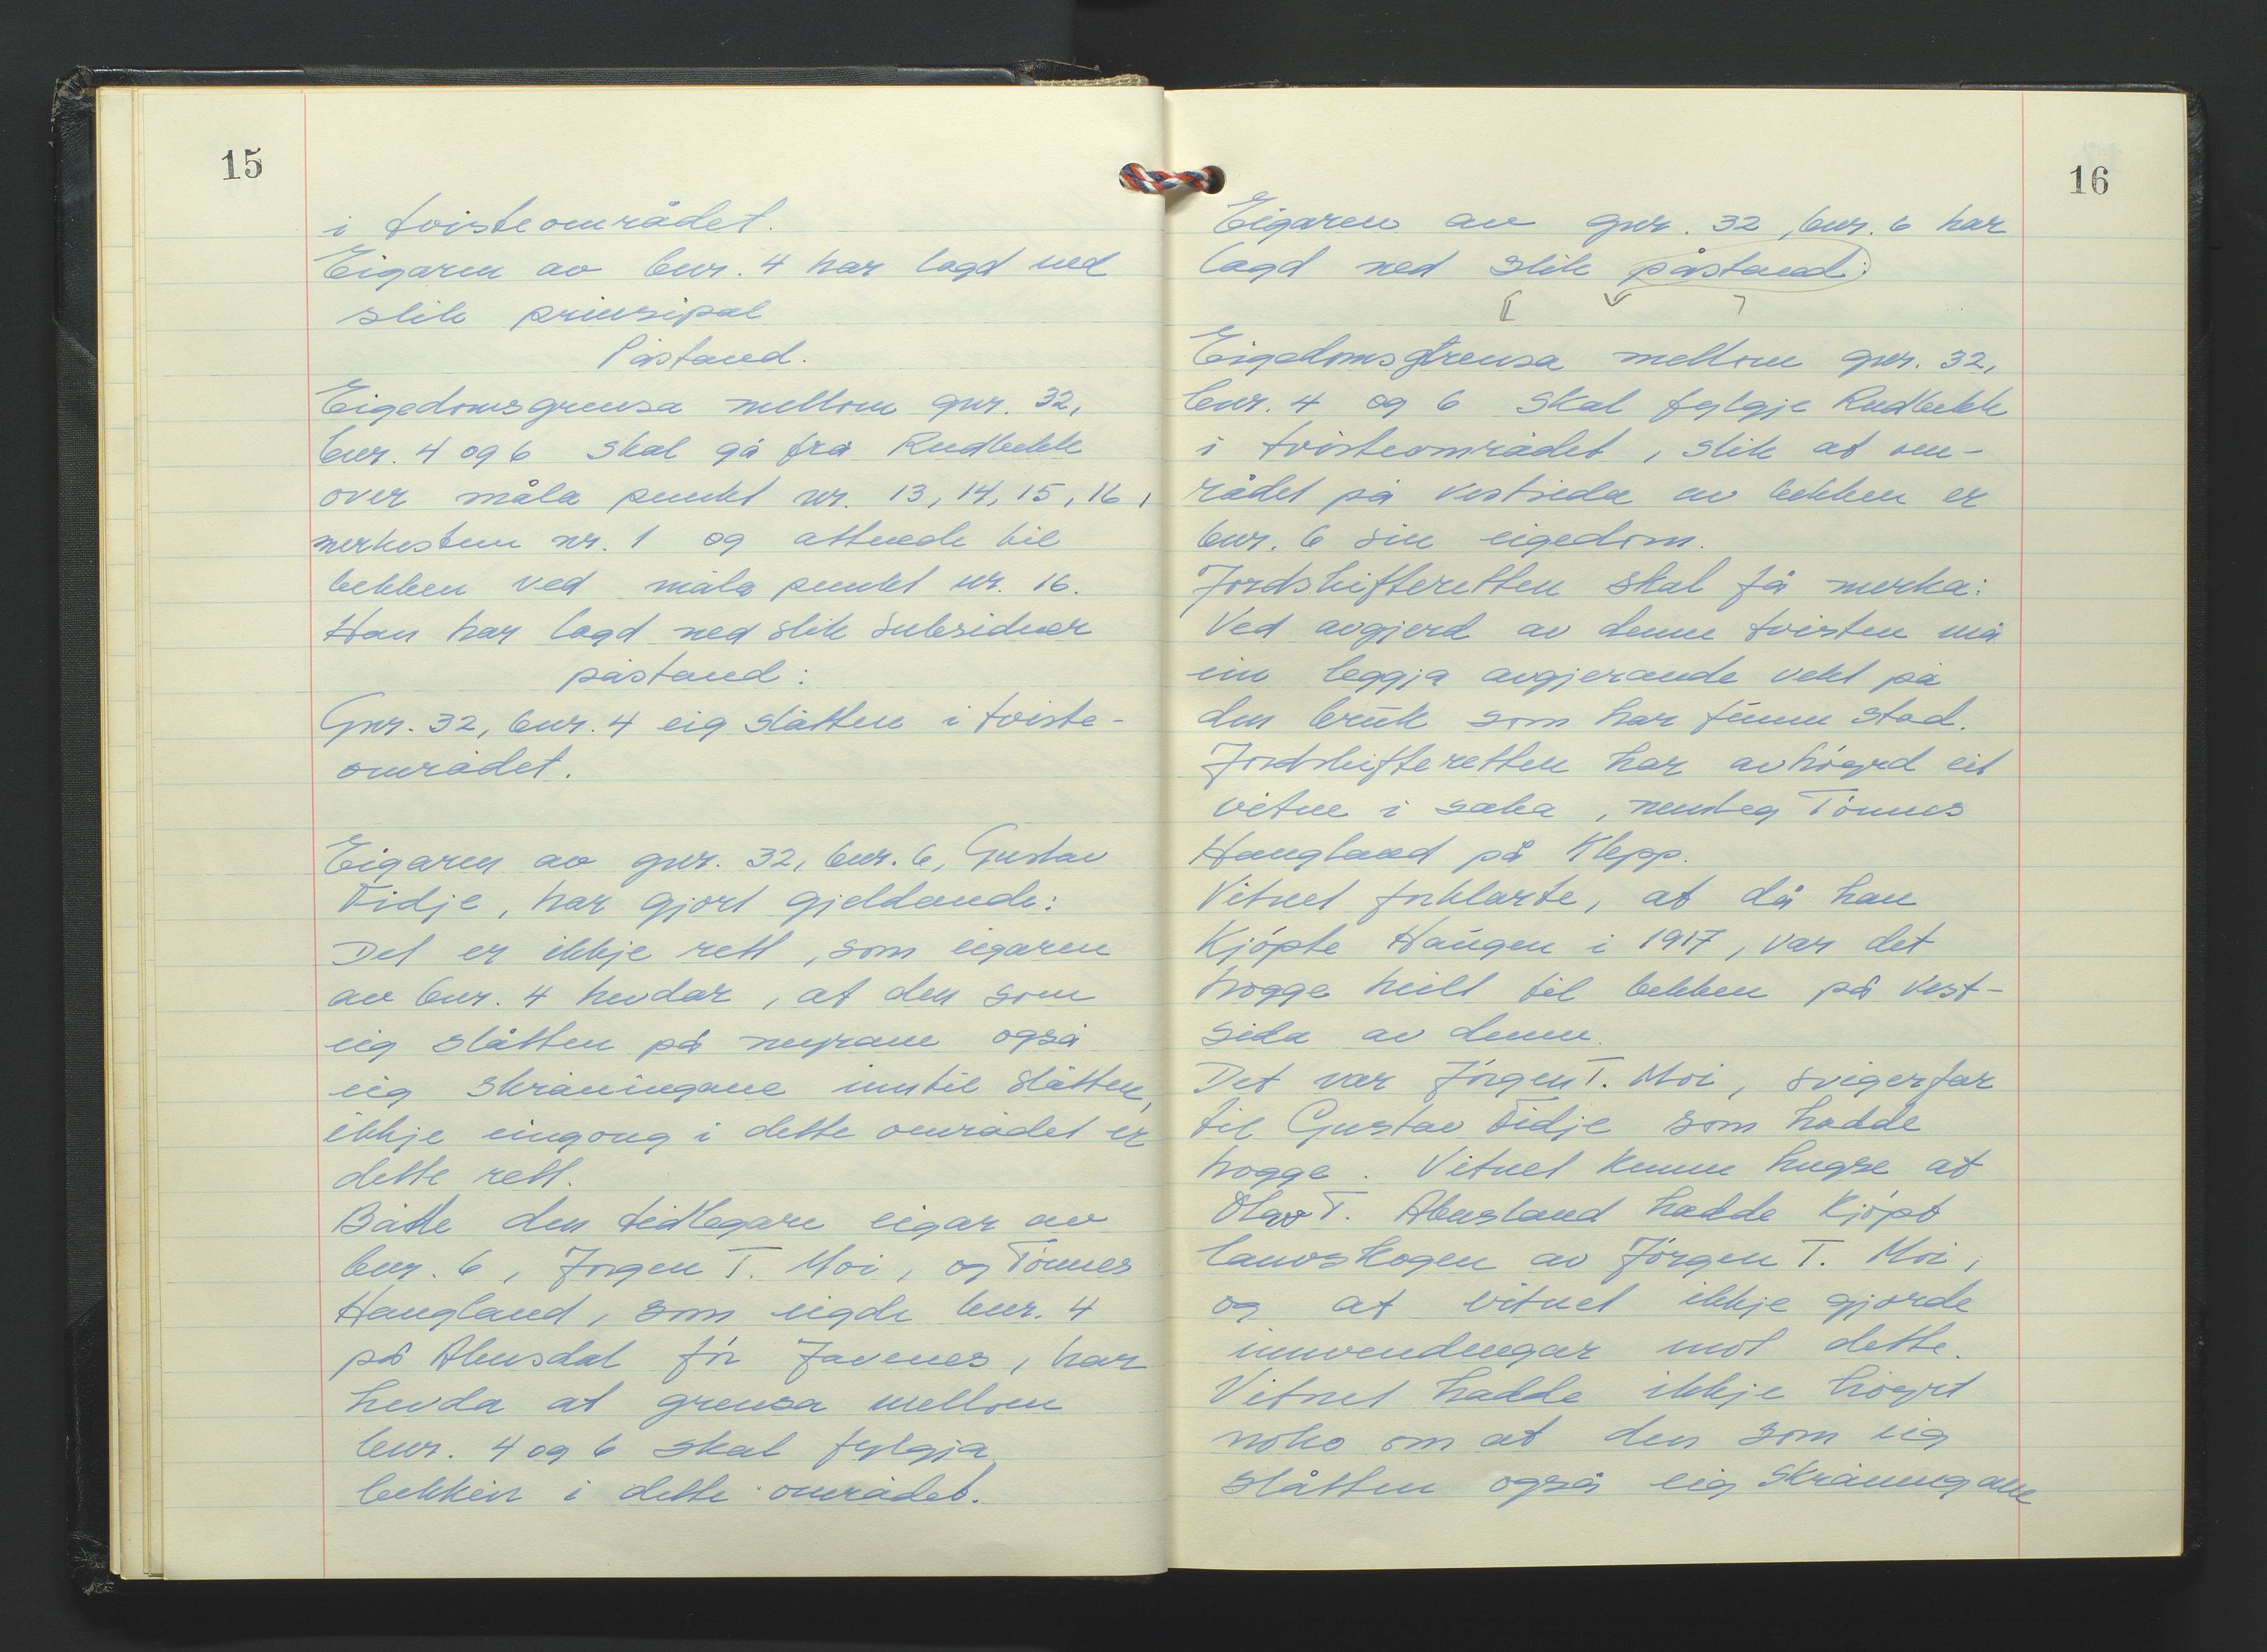 15
i tvisteområdet.
Eigaren av bnr. 4 har lagd ned
slik prinsipal
Påstand.
Eigedomsgrensa mellom gnr. 32,
bnr. 4 og 6 skal gå frå Rudbekk
over måla punkt nr. 13, 14, 15, 16,
merkestein nr. 1 og attende til
bekken ved måla punkt nr. 16.
Han har lagd ned slik subsidiær
påstand:
Gnr. 32, bnr. 4 eig slåtten i tviste-
området.
Eigaren av gnr. 32, bnr. 6, Gustav
Fidje, har gjort gjeldande:
Det er ikkje rett, som eigaren
av bnr. 4 hevdar, at den som
eig slåtten på myrane også
eig skråningane inntil slåtten,
ikkje eingong i dette området er
dette rett.
Både den tidlegare eigar av
bnr. 6, Jørgen T. Moi, og Tønnes
Haugland, som eigde bnr. 4
på Abusdal før Favenes, har
hevda at grensa mellom
bnr. 4 og 6 skal fylgja
bekken i dette området.
16
Eigaren av gnr. 32, bnr. 6 har
lagd ned slik påstand:
Eigedomsgrensa mellom gnr. 32,
bnr. 4 og 6 skal fylgje Rudbekk
i tvisteområdet, slik at om-
rådet på vestsida av bekken er
bnr. 6 sin eigedom.
Jordskifteretten skal få merka:
Ved avgjerd av denne tvisten må
ein leggja avgjerande vekt på
den bruk som har funne stad.
Jordskifteretten har avhøyrd eit
vitne i saka, nemleg Tønnes
Haugland på Klepp.
Vitnet forklarte, at då han
kjøpte Haugen i 1917, var det
hogge heilt til bekken på vest-
sida av denne.
Det var Jørgen T. Moi, svigerfar
til Gustav Fidje som hadde
hogge. Vitnet kunne hugse at
Olav T. Abusland hadde kjøpt
lauvskogen av Jørgen T. Moi,
og at vitnet ikkje gjorde
innvendingar mot dette.
Vitnet hadde ikkje høyrt
noko om at den som eig
slåtten også eig skråningane